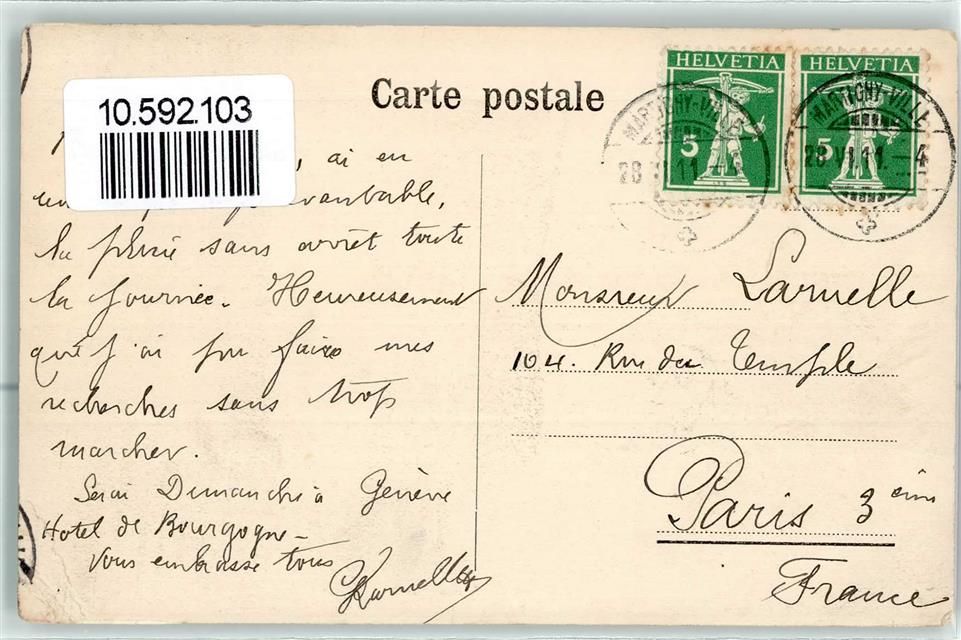 10.592.103
Carte postale
HELVETIA
5
HELVETIA
5
MARTIGNY-VILLE
28 VI.11.-4
MARTIGNY-VILLE
28 VI.11.-4
, ai en
la pluie sans arrêt toute
la journée. Heureusement
que j'ai pu faire mes
recherches sans trop
marcher.
Serai Dimanche à Genève
Hotel de Bourgogne -
Vous embrasse tous
Monsieur Larnelle
104. Rue du Temple
Paris 3 ème
France